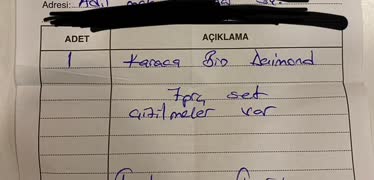 Adresi:
ADET AÇIKLAMA
1 Karaca Bio Daimond
7prç set
çizilmeler var